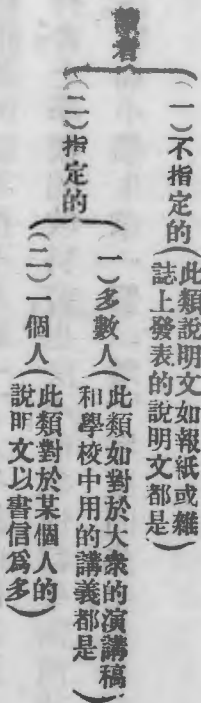 讀者
（一）不指定的（此類說明文如報紙或雜
誌上發表的說明文都是）
（二）指定的
（一）多數人（此類如對於大衆的演講稿
和學校中用的講義都是）
（二）一個人（此類對於某個人的
說明文以書信爲多）